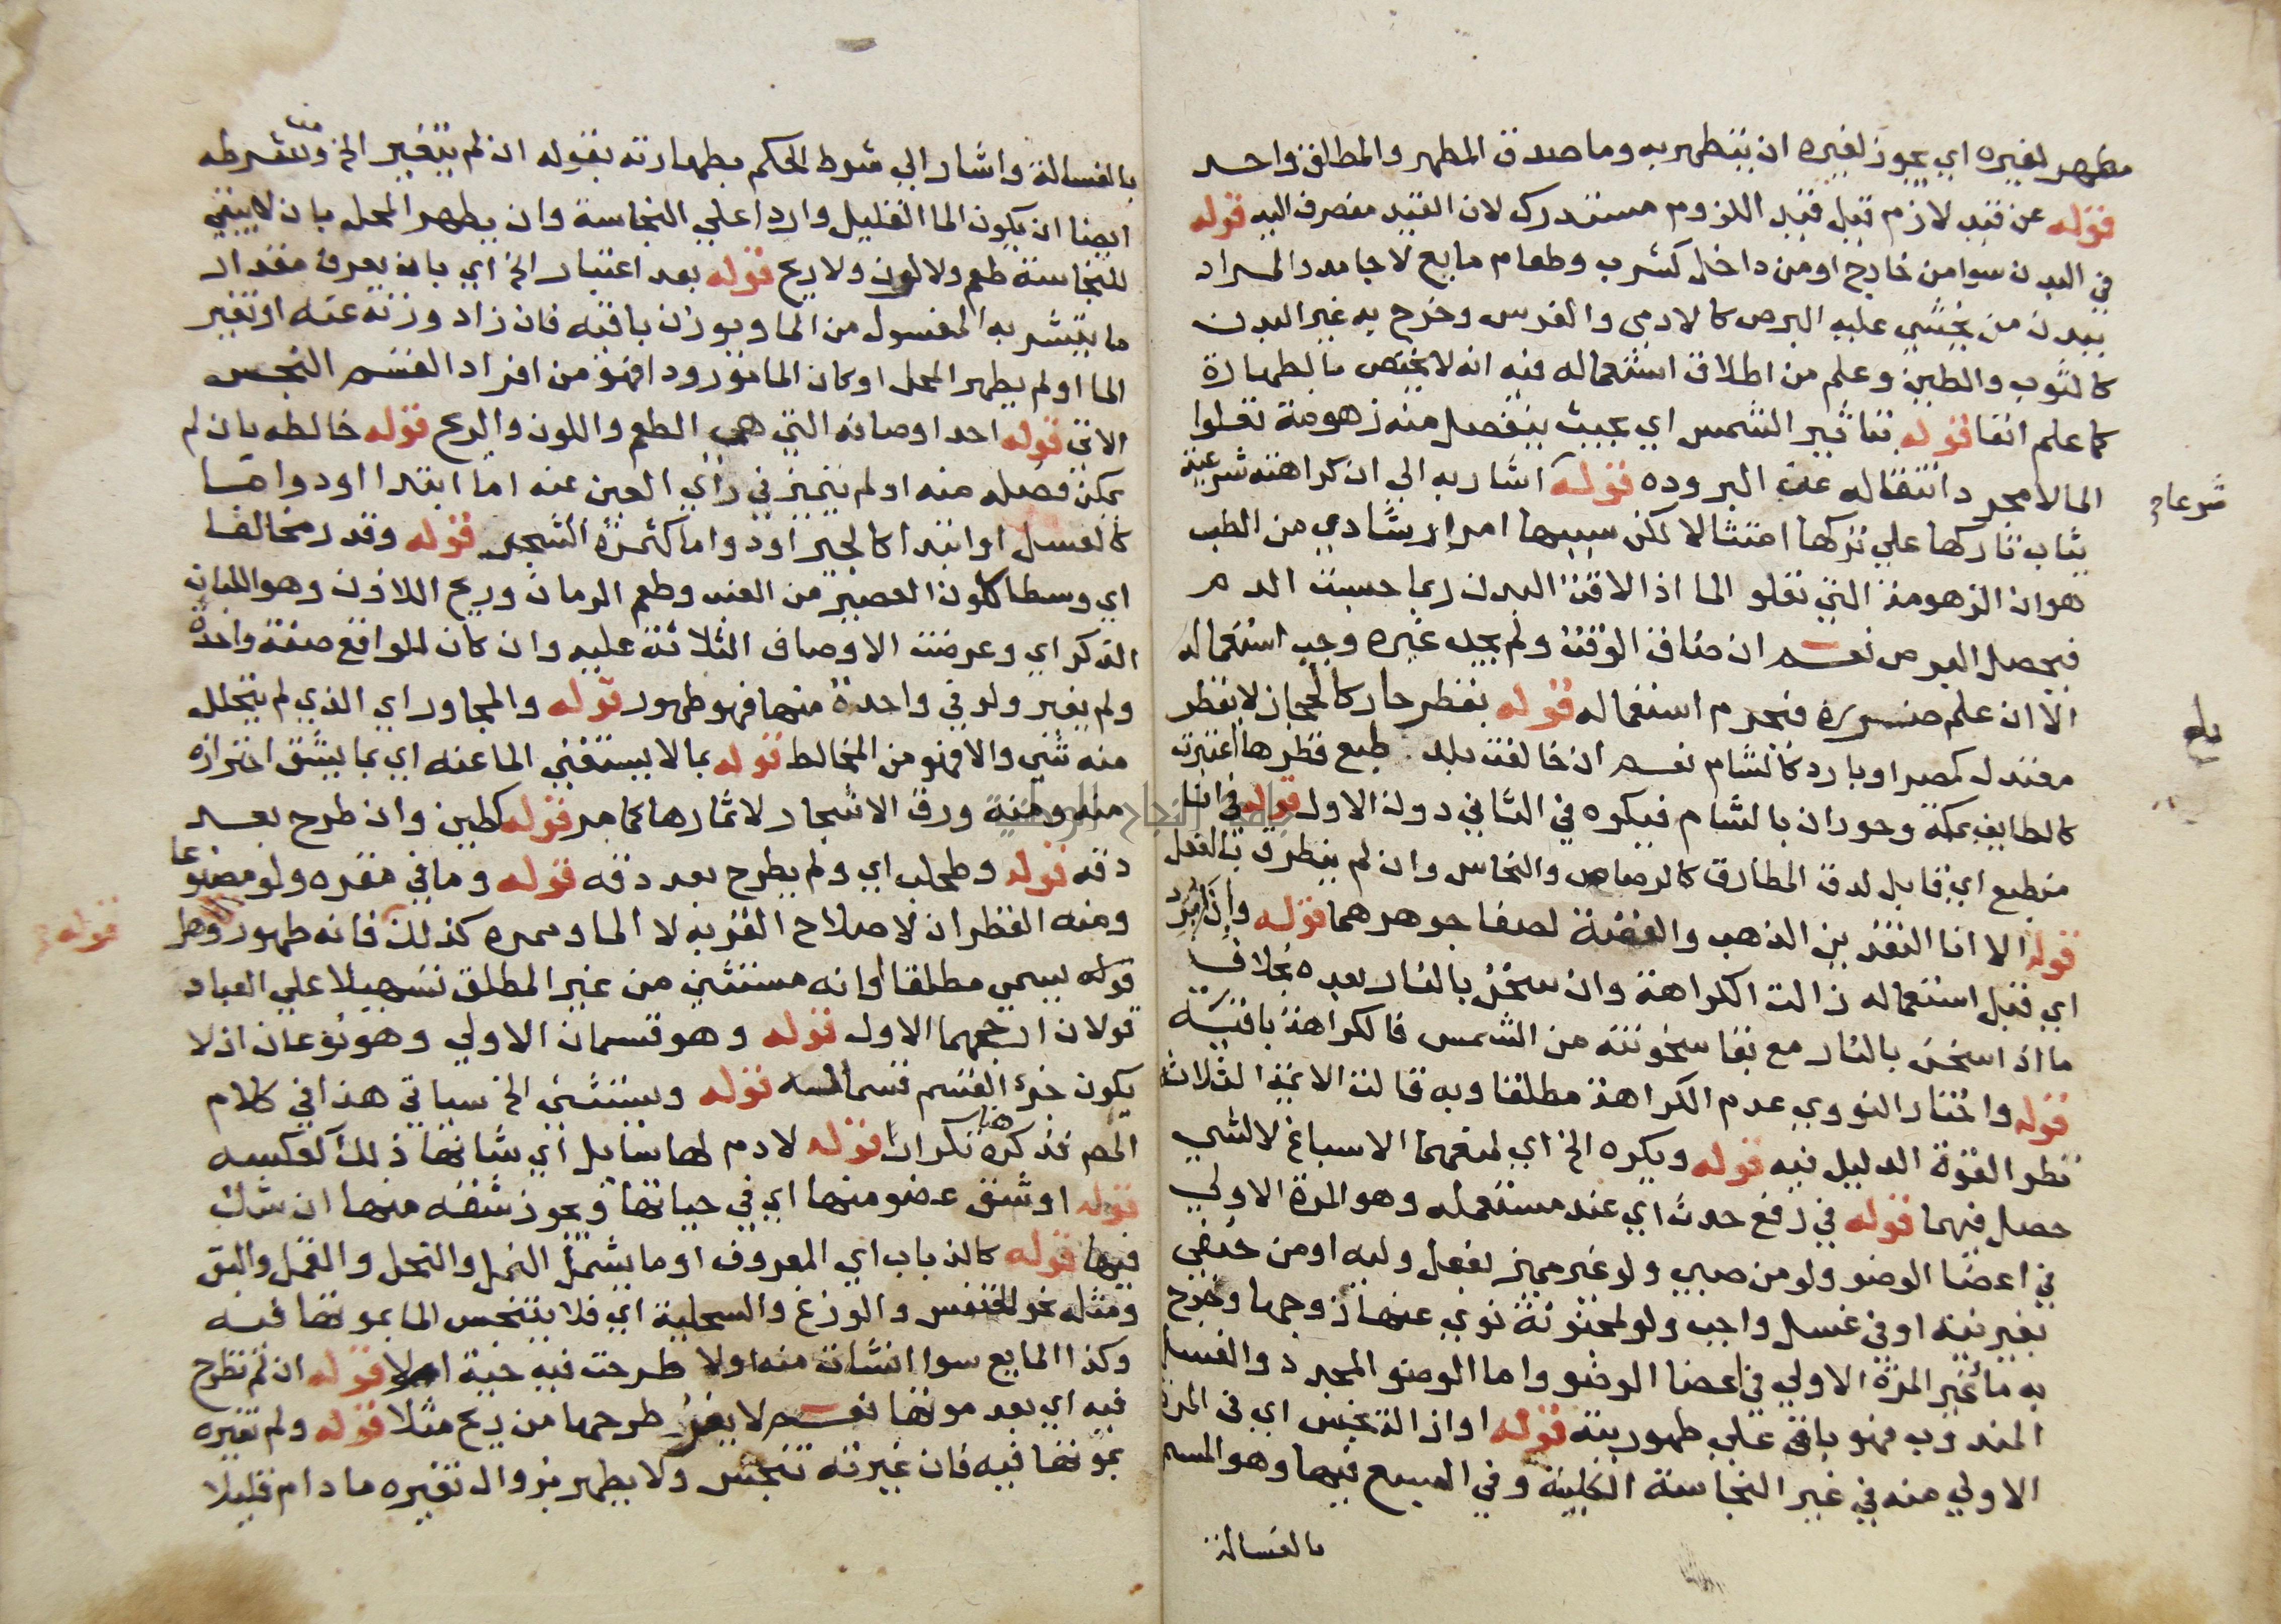 مطهر لغيره اي يجوز لغيره ان يتطهر به وما صدق المطهر والمطلق واحد
قوله عن قيد لازم قيل قيد اللزوم مستدرك لان القيد منصرف اليه قوله
في البدن سوا من خارج او من داخل كشرب وطعام مايع لا جامد والمراد
ببدن من يخشي عليه البرص كالادمي والفرس وخرج به غير البدن
كالثوب والطين وعلم من اطلاق استعماله فيه انه لا يختص بالطهارة
كما علم انفا قوله بتاثير الشمس اي بحيث ينفصل منه زهومة تعلوا
الما لا مجرد انتقاله عن البروده قوله اشار به الي ان كراهته شرعية
شرعا
يثاب تاركها علي تركها امتثالا لكن سببها امر ارشادي من الطب
هو ان الزهومة التي تعلو الما اذا لاقت البدن ربما حبست الدم
فيحصل البرص نعم ان ضاق الوقت ولم يجد غيره وجب استعماله
الا ان علم ضرره فيحرم استعماله قوله بقطر حار كالحجاز لا بقطر
معتدل كمصر او بارد كالشام نعم ان خالفت بلد طبع قطرها اعتبرت
كالطايف بمكة وحوران بالشام فيكره في الثاني دون الاول قوله في انا
منطبع اي قابل لدق المطارق كالرصاص والنحاس وان لم يطرق بالفعل
قوله الا انا النقدين الذهب والفضة لصفا جوهرهما قوله واذا برد
اي قبل استعماله زالت الكراهة وان سخن بالنار بعده بخلاف
ما اذا سخن بالنار مع بقا سخونته من الشمس فالكراهة باقية
قوله واختار النووي عدم الكراهة مطلقا وبه قالت الايمة الثلاث
نظر القوة الدليل فيه قوله ويكره الخ اي لمنعهما الاسباغ لا لشي
حصل فيهما قوله في رفع حدث اي عند مستعمله وهو المرة الاولي
في اعضا الوضو ولو من صبي ولو غير مميز بفعل وليه او من حنفي
بغير نية او في غسل واجب ولو لمجنونة نوي عنها زوجها وخرج
به ما غير المرة الاولي في اعضا الوضو واما الوضو المجدد والغسل
المندوب فهو باق علي طهوريته قوله او ازالة نجس اي في المرة
الاولي منه في غير النجاسة الكلبية وفي السبع فيها وهو المسمي
بالغسالة
بالغسالة واشار الي شرط الحكم بطهارته بقوله ان لم يتغير الخ وشرطه
ايضا ان يكون الما القليل واردا علي النجاسة وان يطهر المحل بان لا يبقي
للنجاسة طعم ولا لون ولا ريح قوله بعد اعتبار الخ اي بان يعرف مقدار
ما يتشربه المغسول من الما ويوزن باقيه فان زاد وزنه عنه او تغير
الما او لم يطهر المحل او كان الما مورودا فهو من افراد القسم النجس
الاتي قوله احد اوصافه التي هي الطعم واللون والريح قوله خالطه بان لم
يمكن فصله منه او لم يتميز في راي العين عنه اما ابتدا او دواما
كالعسل او ابتدا كالجير او دواما كثمرة الشجر قوله وقدر مخالفا
اي وسطا كلون العصير من العنب وطعم الرمان وريح اللاذن وهو اللبان
الذكر اي وعرضت الاوصاف الثلاثة عليه وان كان للواقع صفة واحدة
ولم يغير ولو في واحدة منها فهو طهور قوله والمجاور اي الذي لم يتحلل
منه شي والا فهو من المخالط قوله بما لا يستغني الما عنه اي بما يشق احترازه
منه ومنه ورق الاشجار لا ثمارها كما مر قوله كطين وان طرح بعد
دقه قوله وطحلب اي ولم يطرح بعد دقه قوله وما في مقره ولو مصنوعا
ومنه القطران لاصلاح القربه لا الما وممره كذلك فانه طهور
قوله
قوله يسمي مطلقا او انه مستثني من غير المطلق تسهيلا علي العباد
قولان ارجحهما الاول قوله وهو قسمان الاولي وهو نوعان اذ لا
يكون جزء القسم قسما لسه قوله ويستثني الخ سياتي هذا في كلام
المص فذكره هنا تكرار قوله لا دم لها سايل اي شانها ذلك كعكسه
قوله او شق عضو منها اي في حياتها ويجوز شقه منها ان شك
فيها قوله كالذباب اي المعروف او ما يشمل النمل والنحل والقمل والبق
ومثله نحو الخنفس والوزغ والسحلية اي فلا يتنجس الما بموتها فيه
وكذا المايع سوا انشات منه اولا طرحت فيه حية ام لا قوله ان لم تطرح
فيه اي بعد موتها نعم لا يضر طرحها من ريح مثلا قوله ولم تغيره
بموتها فيه فان غيرته تنجس ولا يطهر بزوال تغيره ما دام قليلا